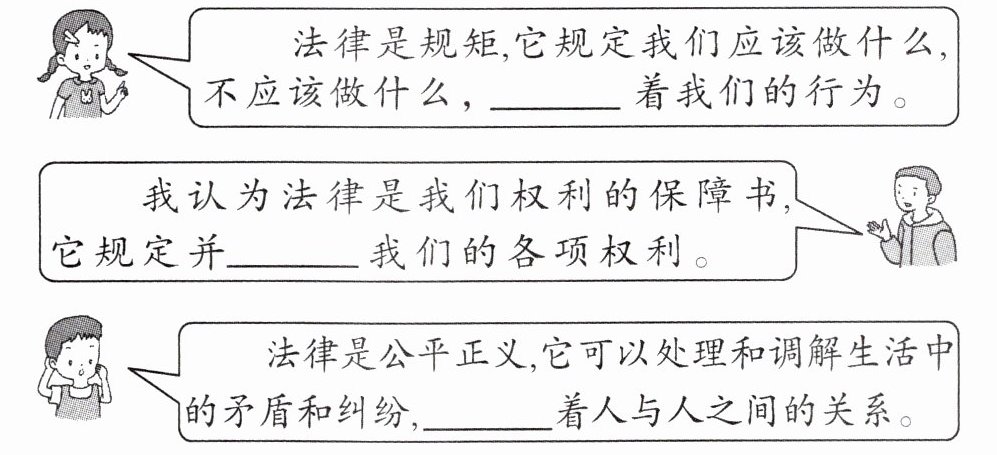 法律是规矩,它规定我们应该做什么,
不应该做什么，______着我们的行为。
我认为法律是我们权利的保障书,
它规定并______我们的各项权利。
法律是公平正义,它可以处理和调解生活中
的矛盾和纠纷,______着人与人之间的关系。